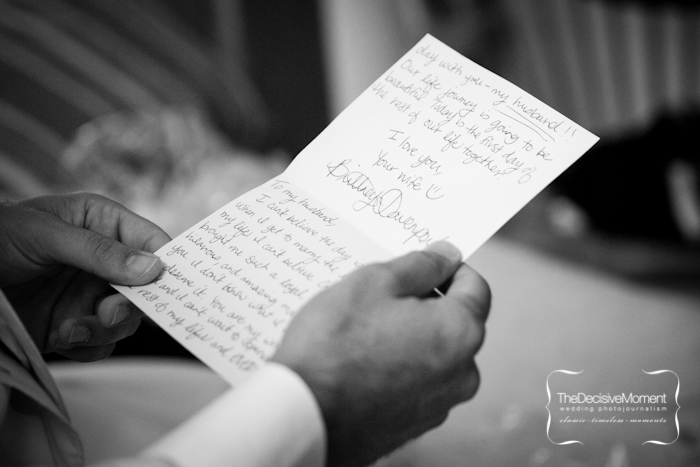 To my husband,
I can't believe the day
when I get to marry the
my life. I can't believe
brought me such a loyal
hilarious and amazing
you. I don't know what I
deserve it. You are my
and I can't wait to
rest of my life!! and EVER
day with you - my husband!!
Our life journey is going to be
beautiful. Today is the first day of
the rest of our life together.
I love you,
Your wife
Brittney Davenport
TheDecisiveMoment
wedding photojournalism
classic · timeless · moments